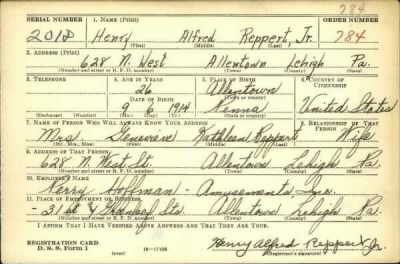 784
SERIAL NUMBER 1. NAME (Print) ORDER NUMBER
2018 Henry Alfred Reppert, Jr. 784
(First) (Middle) (Last)
2. ADDRESS (Print)
628 N. West Allentown Lehigh Pa.
(Number and street or R. F. D. number) (Town) (County) (State)
3. TELEPHONE 4. AGE IN YEARS 5. PLACE OF BIRTH 6. COUNTRY OF CITIZENSHIP
26 Allentown
DATE OF BIRTH (Town or county)
9 6 1914 Penna United States
(Exchange) (Number) (Mo.) (Day) (Yr.) (State or country)
7. NAME OF PERSON WHO WILL ALWAYS KNOW YOUR ADDRESS 8. RELATIONSHIP OF THAT PERSON
Mrs. Genevieve Kathleen Reppert Wife
(Mr., Mrs., Miss) (First) (Middle) (Last)
9. ADDRESS OF THAT PERSON
628 N. West St. Allentown Lehigh Pa.
(Number and street or R. F. D. number) (Town) (County) (State)
10. EMPLOYER'S NAME
Hoffman - Amusements, Inc.
11. PLACE OF EMPLOYMENT OR BUSINESS
31st & Sts. Allentown Lehigh Pa.
(Number and street or R. F. D. number) (Town) (County) (State)
I AFFIRM THAT I HAVE VERIFIED ABOVE ANSWERS AND THAT THEY ARE TRUE.
REGISTRATION CARD
D. S. S. Form 1 (over) Henry Alfred Reppert Jr.
(Registrant's signature)